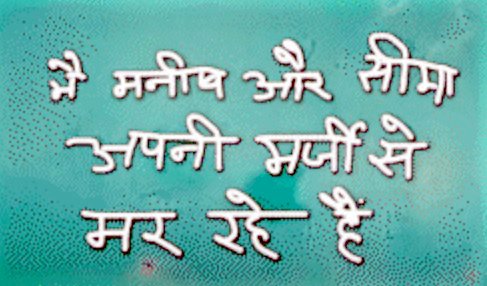 मै मनीष और सीमा
अपनी मर्जी से
मर रहे हैं